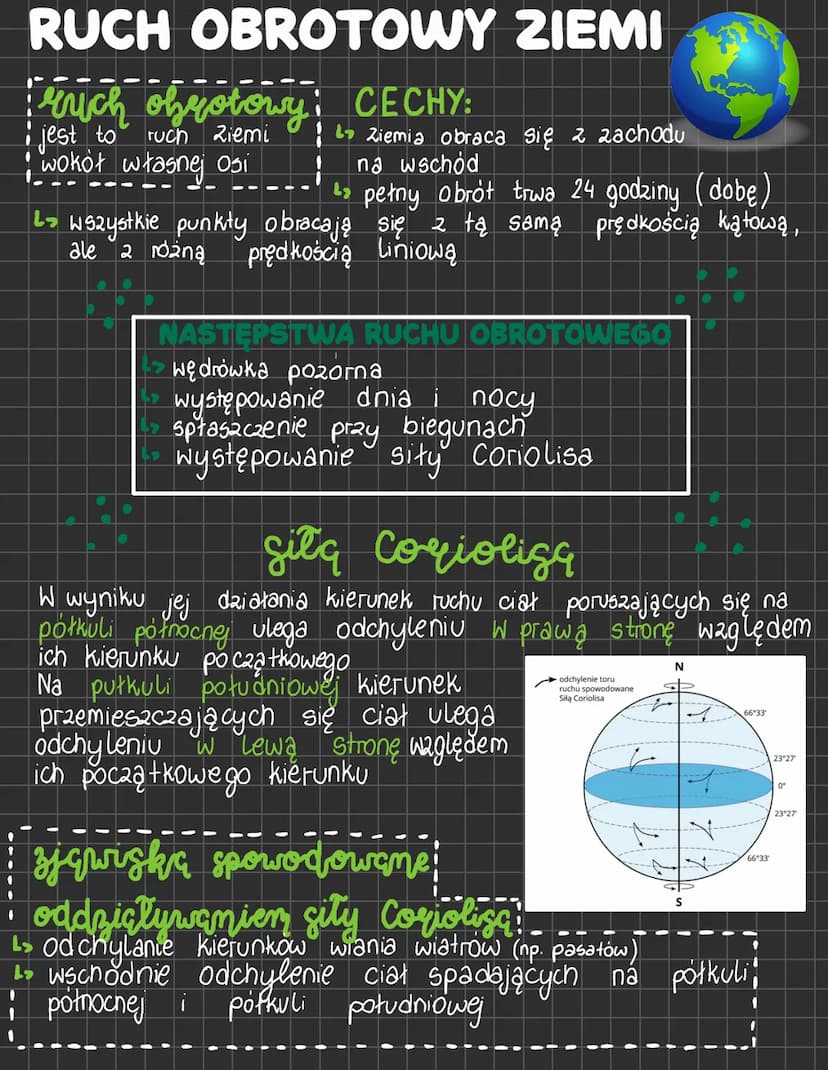 RUCH OBROTOWY ZIEMI
ruch obrotowy
jest to ruch Ziemi
wokół własnej osi
CECHY:
↳ Ziemia obraca się z zachodu
na wschód
↳ pełny obrót trwa 24 godziny (dobę)
↳ wszystkie punkty obracają się z tą samą prędkością kątową,
ale z różną prędkością liniową
NASTĘPSTWA RUCHU OBROTOWEGO
↳ wędrówka pozorna
↳ występowanie dnia i nocy
↳ spłaszczenie przy biegunach
↳ występowanie siły Coriolisa
siła Coriolisa
W wyniku jej działania kierunek ruchu ciał poruszających się na
półkuli północnej ulega odchyleniu w prawą stronę względem
ich kierunku początkowego
Na pułkuli południowej kierunek
przemieszczających się ciał ulega
odchyleniu w lewą stronę względem
ich początkowego kierunku
odchylenie toru
ruchu spowodowane
Siłą Coriolisa
N
66°33'
23°27'
0°
23°27'
66°33'
S
zjawiska spowodowane
oddziaływaniem siły Coriolisa
↳ odchylanie kierunków wiania wiatrów (np. pasatów)
↳ wschodnie odchylenie ciał spadających na półkuli
północnej i półkuli południowej